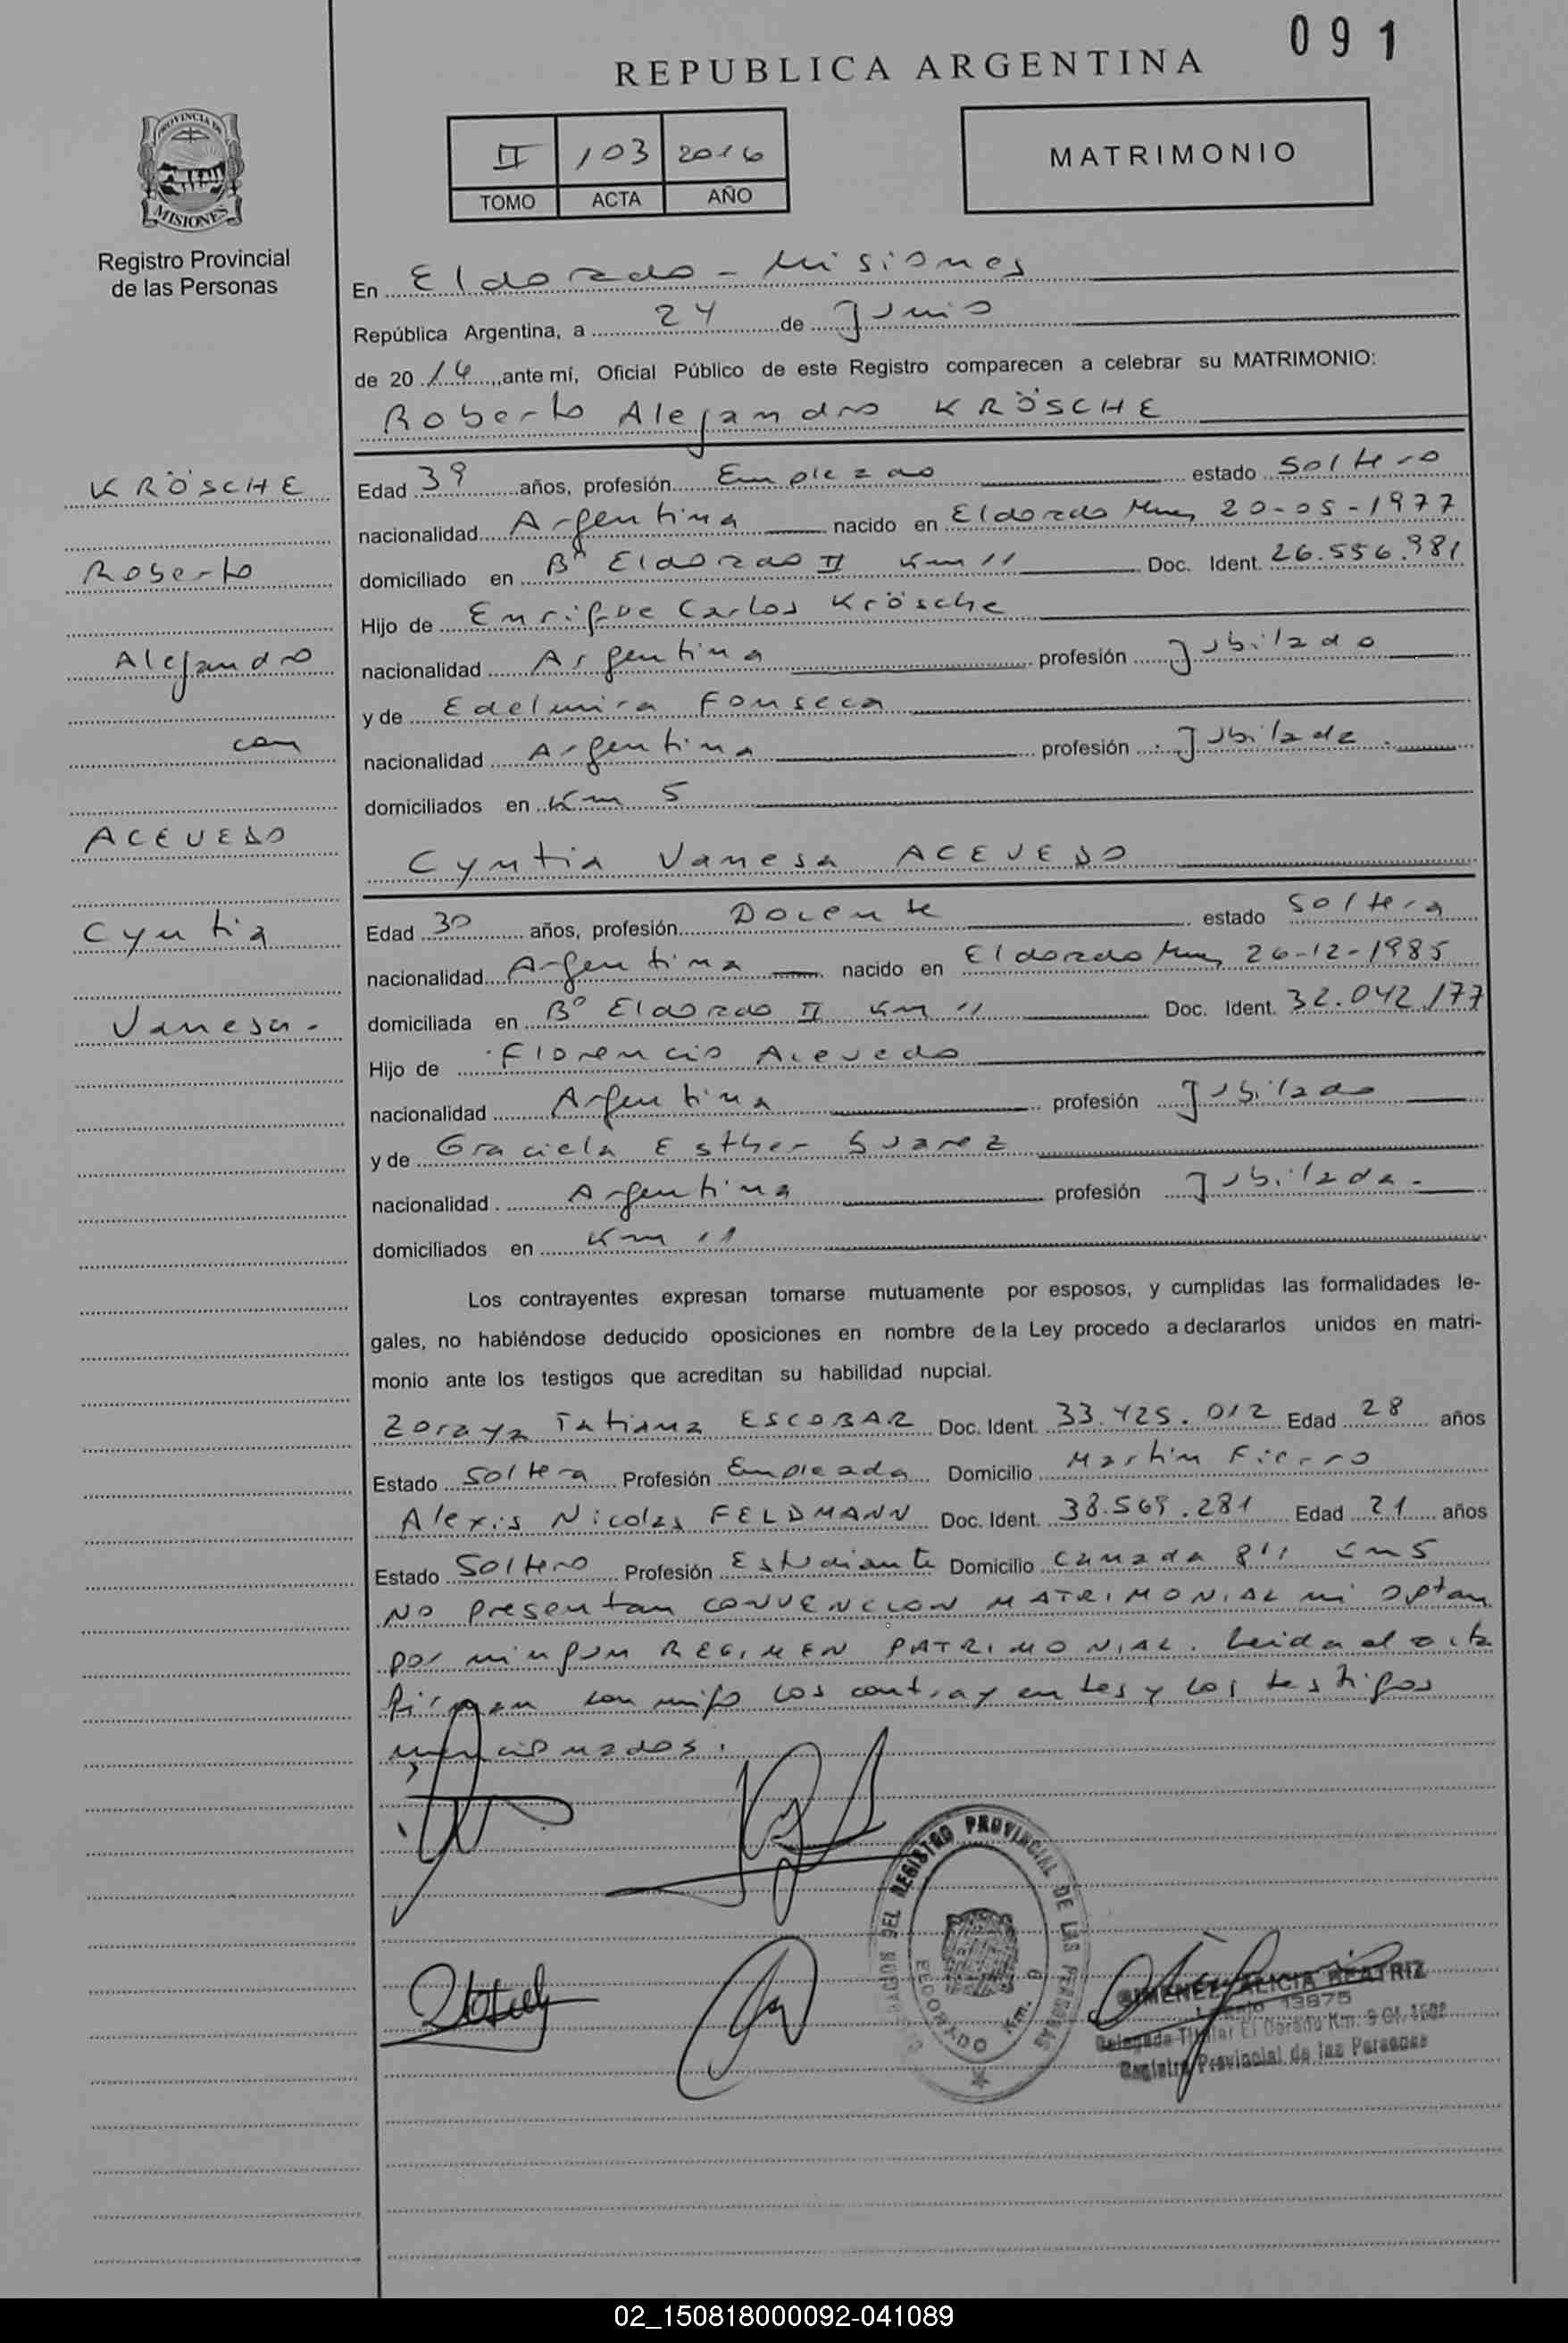 091
REPUBLICA ARGENTINA
PROVINCIA DE
MISIONES
II 103 2016
TOMO ACTA AÑO
MATRIMONIO
Registro Provincial
de las Personas
En Eldorado - Misiones
República Argentina, a 24 de Junio
de 2016, ante mí, Oficial Público de este Registro comparecen a celebrar su MATRIMONIO:
Roberto Alejandro KRÖSCHE
KRÖSCHE
Roberto
Alejandro
con
ACEVEDO
Cyntia
Vanesa.-
Edad 39 años, profesión Empleado estado Soltero
nacionalidad Argentina nacido en Eldorado Mnes 20-05-1977
domiciliado en Bº Eldorado II Km 11 Doc. Ident. 26.556.981
Hijo de Enrique Carlos Krösche
nacionalidad Argentina profesión Jubilado
y de Edelmira Fonseca
nacionalidad Argentina profesión Jubilada.
domiciliados en Km 5
Cyntia Vanesa ACEVEDO
Edad 30 años, profesión Docente estado Soltera
nacionalidad Argentina nacido en Eldorado Mnes 26-12-1985
domiciliada en Bº Eldorado II Km 11 Doc. Ident. 32.042.177
Hijo de Florencio Acevedo
nacionalidad Argentina profesión Jubilado
y de Graciela Esther Suarez
nacionalidad Argentina profesión Jubilada.
domiciliados en Km 11
Los contrayentes expresan tomarse mutuamente por esposos, y cumplidas las formalidades le-
gales, no habiéndose deducido oposiciones en nombre de la Ley procedo a declararlos unidos en matri-
monio ante los testigos que acreditan su habilidad nupcial.
Zoraya Tatiana ESCOBAR Doc. Ident. 33.425.012 Edad 28 años
Estado Soltera Profesión Empleada Domicilio Martin Fierro
Alexis Nicolas FELDMANN Doc. Ident. 38.569.281 Edad 21 años
Estado Soltero Profesión Estudiante Domicilio Canada 811 Km 5
NO presentan CONVENCION MATRIMONIAL ni optan
por ningun REGIMEN PATRIMONIAL. Leida el acta
firman conmigo los contrayentes y los testigos
mencionados.
DEL REGISTRO PROVINCIAL DE LAS PERSONAS
ELDORADO Km. 9
GIMENEZ ALICIA BEATRIZ
Legajo 13875
Delegada Titular El Dorado Km. 9 Of. 1602
Registro Provincial de las Personas
02_150818000092-041089